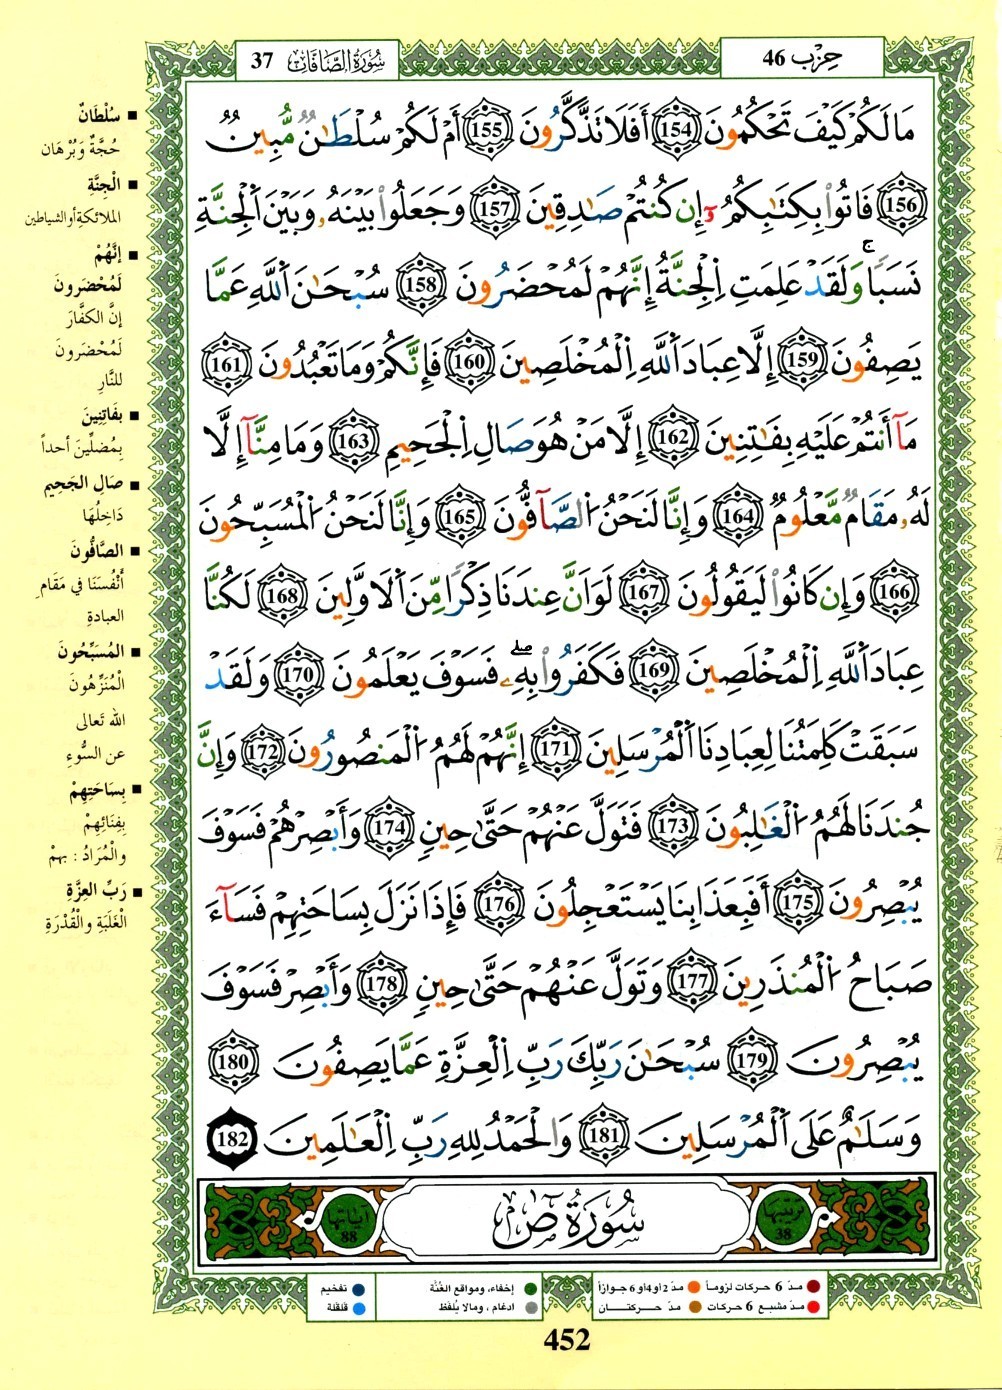 سُورَةُ الصَّافَّاتِ 37
حِزْب 46
مَا لَكُمْ كَيْفَ تَحْكُمُونَ 154 أَفَلَا تَذَّكَّرُونَ 155 أَمْ لَكُمْ سُلْطَٰنٌ مُّبِينٌ
156 فَاتُوا بِكِتَٰبِكُمُۥٓ إِن كُنتُمْ صَٰدِقِينَ 157 وَجَعَلُوا بَيْنَهُۥ وَبَيْنَ اَلْجِنَّةِ
نَسَبًا وَلَقَدْ عَلِمَتِ اِلْجِنَّةُ إِنَّهُمْ لَمُحْضَرُونَ 158 سُبْحَٰنَ اَللَّهِ عَمَّا
يَصِفُونَ 159 إِلَّا عِبَادَ اَللَّهِ اِلْمُخْلَصِينَ 160 فَإِنَّكُمْ وَمَا تَعْبُدُونَ 161
مَآ أَنتُمْ عَلَيْهِ بِفَٰتِنِينَ 162 إِلَّا مَنْ هُوَ صَالِ اِلْجَحِيمِ 163 وَمَا مِنَّآ إِلَّا
لَهُۥ مَقَامٌ مَّعْلُومٌ 164 وَإِنَّا لَنَحْنُ اُلصَّآفُّونَ 165 وَإِنَّا لَنَحْنُ اُلْمُسَبِّحُونَ
166 وَإِن كَانُوا لَيَقُولُونَ 167 لَوَ اَنَّ عِندَنَا ذِكْرًا مِّنَ اَلَاوَّلِينَ 168 لَكُنَّا
عِبَادَ اَللَّهِ اِلْمُخْلَصِينَ 169 فَكَفَرُوا بِهِۦ فَسَوْفَ يَعْلَمُونَ 170 وَلَقَدْ
سَبَقَتْ كَلِمَتُنَا لِعِبَادِنَا اَلْمُرْسَلِينَ 171 إِنَّهُمْ لَهُمُ اُلْمَنصُورُونَ 172 وَإِنَّ
جُندَنَا لَهُمُ اُلْغَٰلِبُونَ 173 فَتَوَلَّ عَنْهُمْ حَتَّىٰ حِينٍ 174 وَأَبْصِرْهُمْ فَسَوْفَ
يُبْصِرُونَ 175 أَفَبِعَذَابِنَا يَسْتَعْجِلُونَ 176 فَإِذَا نَزَلَ بِسَاحَتِهِمْ فَسَآءَ
صَبَاحُ اُلْمُنذَرِينَ 177 وَتَوَلَّ عَنْهُمْ حَتَّىٰ حِينٍ 178 وَأَبْصِرْ فَسَوْفَ
يُبْصِرُونَ 179 سُبْحَٰنَ رَبِّكَ رَبِّ اِلْعِزَّةِ عَمَّا يَصِفُونَ 180
وَسَلَٰمٌ عَلَى اَلْمُرْسَلِينَ 181 وَالْحَمْدُ لِلهِ رَبِّ اِلْعَٰلَمِينَ 182
ترتيبها 38
سُورَةُ صٓ
آياتها 88
■ سُلْطَانٌ
حُجَّةٌ وَبُرْهَان
■ الْجِنَّةِ
الملائكةِ أو الشياطين
■ إنَّهُمْ
لَمُحْضَرونَ
إنَّ الكفَّارَ
لَمُحْضَرونَ
للنَّارِ
■ بفَاتِنِينَ
بِمُضلِّينَ أحداً
■ صَالِ الجَحِيم
دَاخِلُهَا
■ الصَّافُّونَ
أَنْفُسَنَا في مَقَامِ
العبادةِ
■ المُسَبِّحُونَ
الْمُنَزِّهُونَ
الله تَعالى
عن السُّوءِ
■ بِسَاحَتِهِمْ
بِفِنَائِهِمْ
والْمُرَادُ : بهمْ
■ رَبِّ العِزَّةِ
الْغَلَبَةِ والْقُدْرَةِ
مدّ 6 حركات لزوماً
مدّ 2 أو 4 أو 6 جوازاً
إخفاء، ومواقع الغُنَّة
تفخيم
مدّ مشبع 6 حركات
مدّ حركتان
ادغام ، ومالا يُلفَظ
قلقلة
452